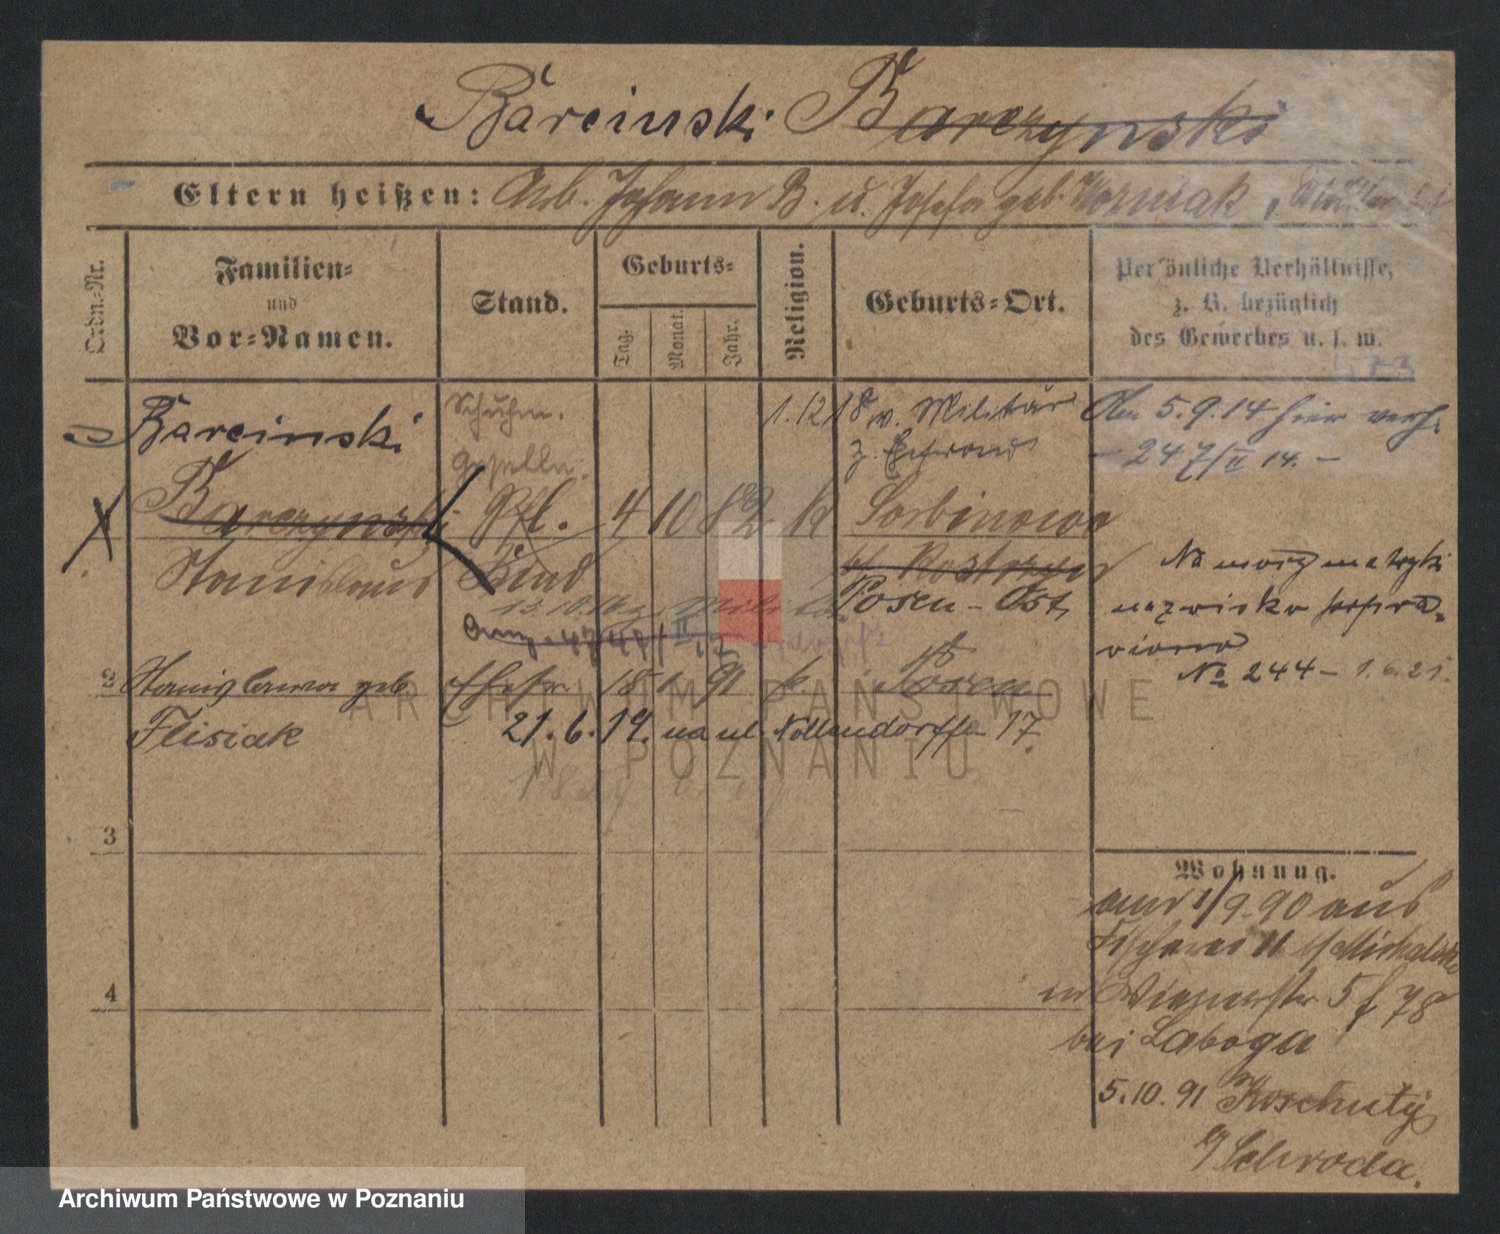 Barcinski Barczynski
Eltern heißen: Arb. Johann B. u. Josefa geb. Wozniak,
Ordn-Nr.
Familien-
und
Vor-Namen.
Stand.
Geburts-
Tag.
Monat.
Jahr.
Religion.
Geburts-Ort.
Persönliche Verhältnisse,
z. B. bezüglich
des Gewerbes u. s. w.
Barcinski
Schuhm.
Geselle
1.12.18 v. Militär
z.
Am 5.9.14 hier verh.
- 247/II 14. -
Barczynski
Pfl. 4 10 82 k Sarbinowo
Stanislaus
Kind
b/ Kostrzyn
Posen-Ost,
Na mocy metryki
nazwisko popra-
wiono
No 244 - 1.6.21.
2 Stanislawa geb. Ehefr. 18 1. 91 k. Posen
Flisiak
21.6.19. na ul. Nollendorffa 17.
3
4
Wohnung.
1/9.90 aus
Fischerei 11
5
bei Laboga
5.10.91 Koschuty
b/ Schroda.
ARCHIWUM PAŃSTWOWE
W POZNANIU
Archiwum Państwowe w Poznaniu